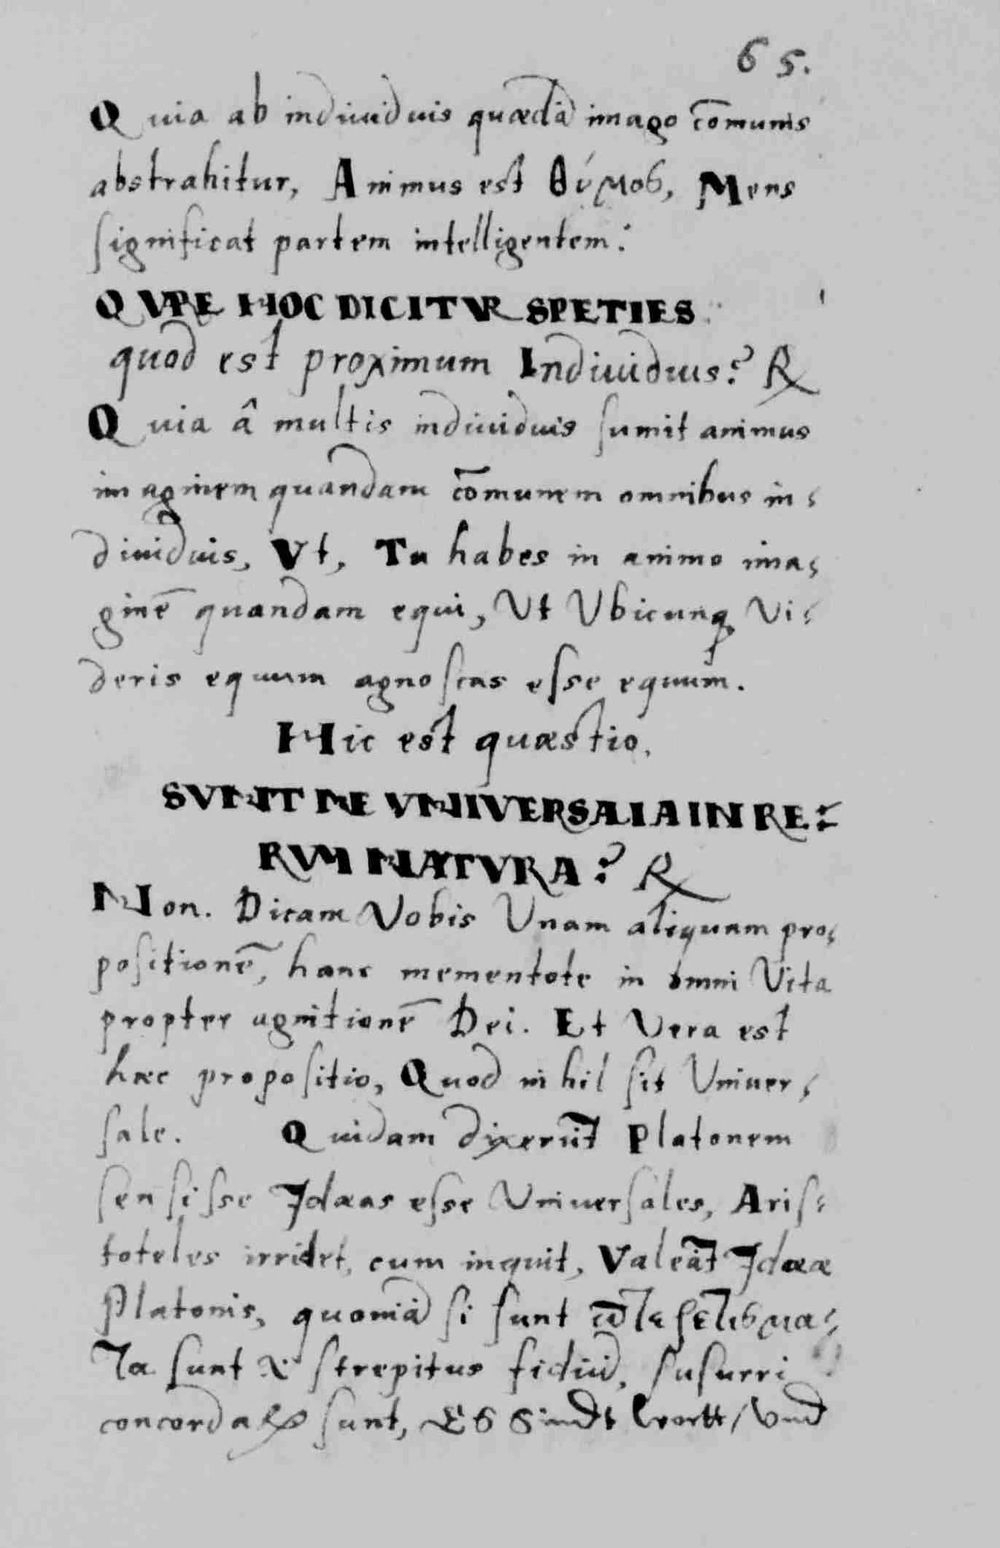 65.
Quia ab indiuiduis quædā imago cōmunis
abstrahitur, Animus est θύμος, Mens
significat partem intelligentem:
QVARE HOC DICITVR SPETIES
quod est proximum Indiuiduis? ℞
Quia â multis indiuiduis sumit animus
imaginem quandam cōmunem omnibus in:
diuiduis, Vt, Tu habes in animo ima:
ginē quandam equi, Vt Vbicunq Vi:
deris equum agnoscas esse equum.
Hic est quæstio.
SVNT NE VNIVERSALIA IN RE:
RVM NATVRA? ℞
Non. Dicam Vobis Unam aliquam pro:
positionē, hanc mementote in omni Vita
propter agnitionē Dei. Et Vera est
hæc propositio, Quod nihil sit Vniuer:
sale. Quidam dixerūt Platonem
sensisse Idæas esse Vniuersales, Aris:
toteles irridet, cum inquit, Valeāt Idææ
Platonis, quoniā si sunt
τα sunt strepitus fidiū, susurri
sunt, Es Sindt wortt / Vnd